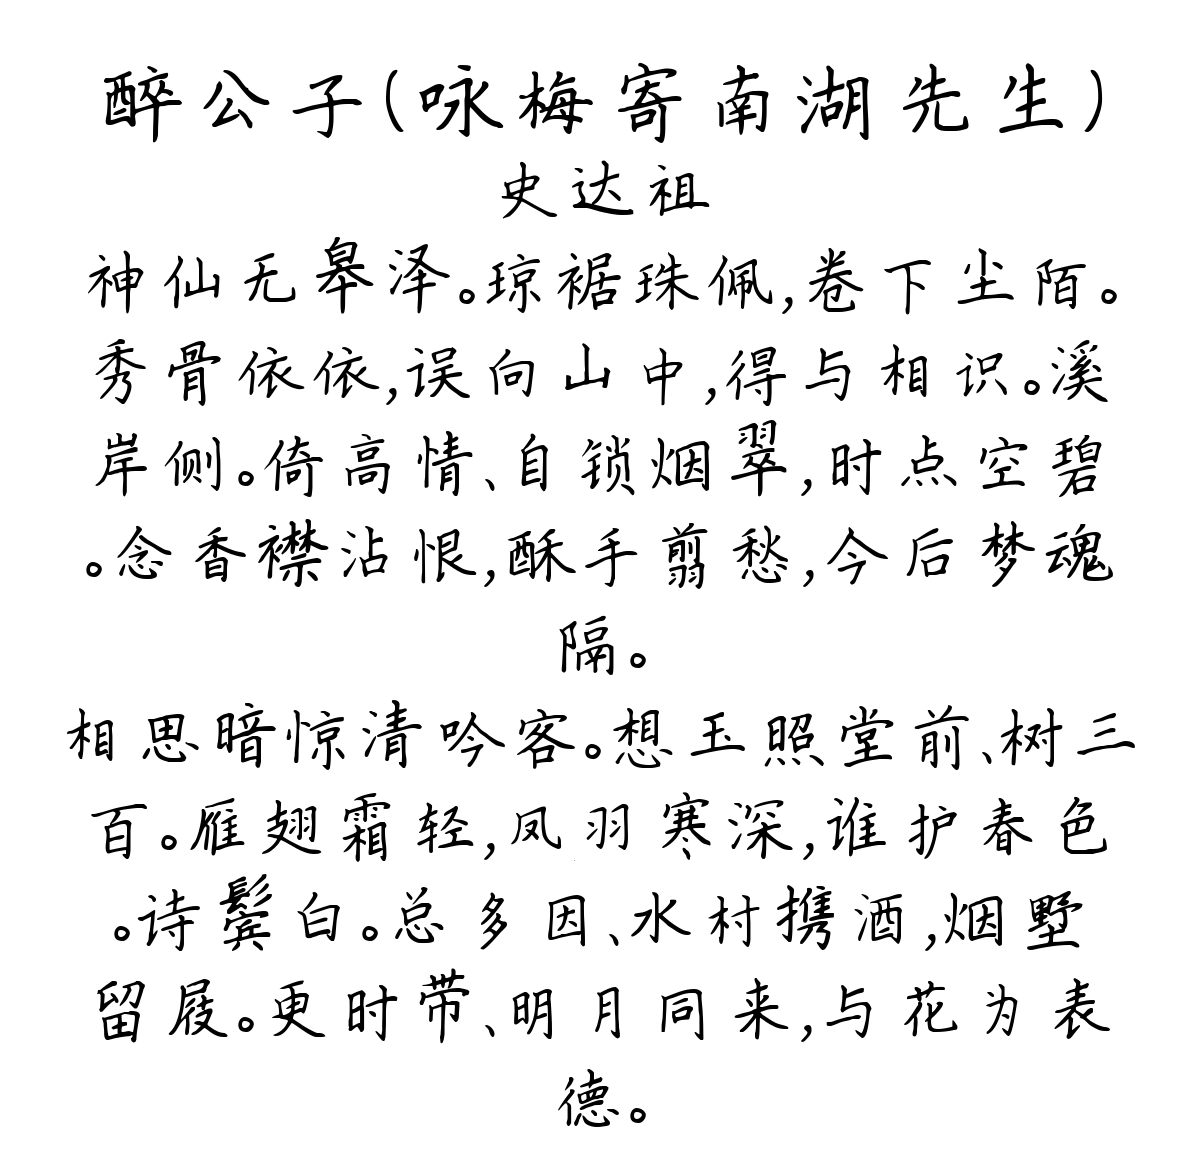 醉公子(咏梅寄南湖先生)
史达祖
神仙无皋泽。琼裾珠佩,卷下尘陌。
秀骨依依,误向山中,得与相识。溪
岸侧。倚高情、自锁烟翠,时点空碧
。念香襟沾恨,酥手翦愁,今后梦魂
隔。
相思暗惊清吟客。想玉照堂前、树三
百。雁翅霜轻,凤羽寒深,谁护春色
。诗鬓白。总多因、水村携酒,烟墅
留屐。更时带、明月同来,与花为表
德。